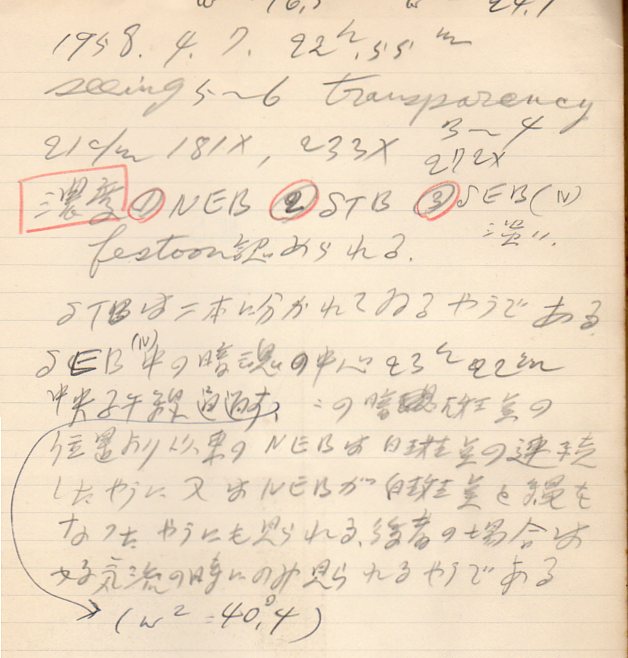 w = 16.5 w = 24.1
1958. 4. 7. 22h.55m
seeing 5~6 transparency
3~4
21c/m 181X, 233X 272X
濃度 ① NEB ② STB ③ SEB(N)
濃い.
festoon 認められる.
STBは二本に分かれてゐるやうである
SEB(N)中の暗塊の中心 23h 22m
中央子午線通過す, この暗斑点の
位置より以東のNEBは白斑点の連続
したやうに又はNEBが白斑点と縄を
なつたやうにも見られる、後者の場合は
気流の時にのみ見られるやうである
(w2 = 40°.4)